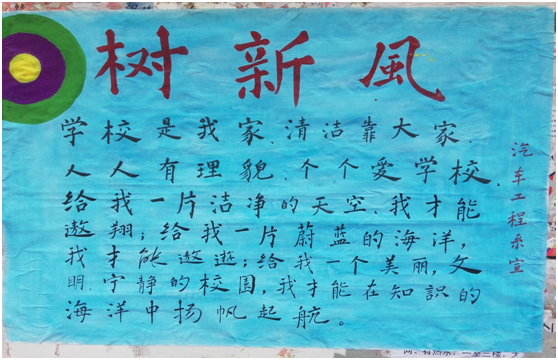 树新風
学校是我家.清洁靠大家.
人人有理貌.个个爱学校.
给我一片洁净的天空.我才能
遨翔;给我一片蔚蓝的海洋,
我才能遨遊;给我一个美丽,文
明.宁静的校园,我才能在知識的
海洋中扬帆起航。
汽车工程系宣